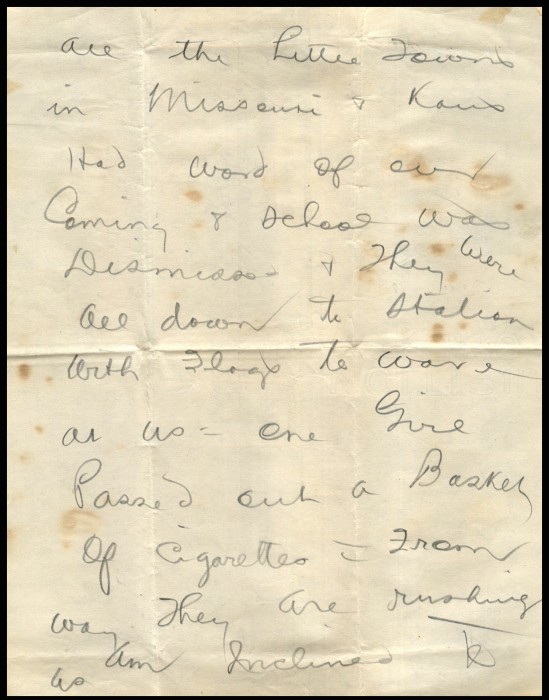 All the Little Towns
in Missouri & Kans
Had word of our
Coming & School was
Dismissed & They were
All down to Station
With Flags to wave
at us - one Girl
Passed out a Basket
Of Cigarettes = From
way They are rushing
us Am Inclined to